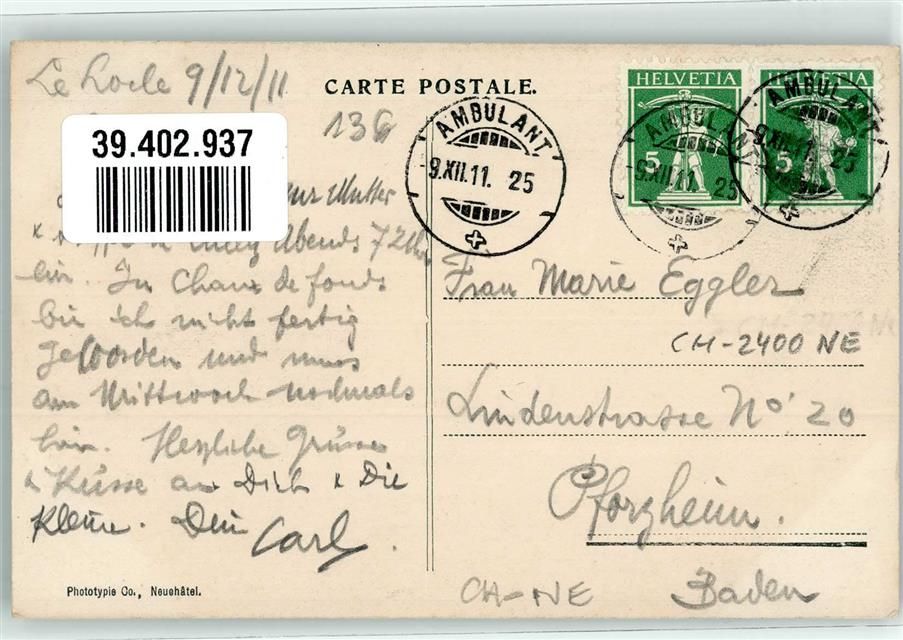 Le Locle 9/12/11
CARTE POSTALE.
136
39.402.937
AMBULANT
9.XII.11. 25
HELVETIA
5
HELVETIA
5
AMBULANT
9.XII.11 25
AMBULANT
9.XII.11. 25
nur Mutter
Abends 7 Uhr
hin. In Chaux de fonds
bin ich nicht fertig
geworden und muss
am Mittwoch nochmals
hin. Herzliche Grüsse
& Küsse an Dich & Die
Kleine. Dein Carl.
Phototypie Co., Neuchâtel.
Frau Marie Eggler
CH-2400 NE
Lindenstrasse No. 20
Pforzheim.
Baden
CH-NE